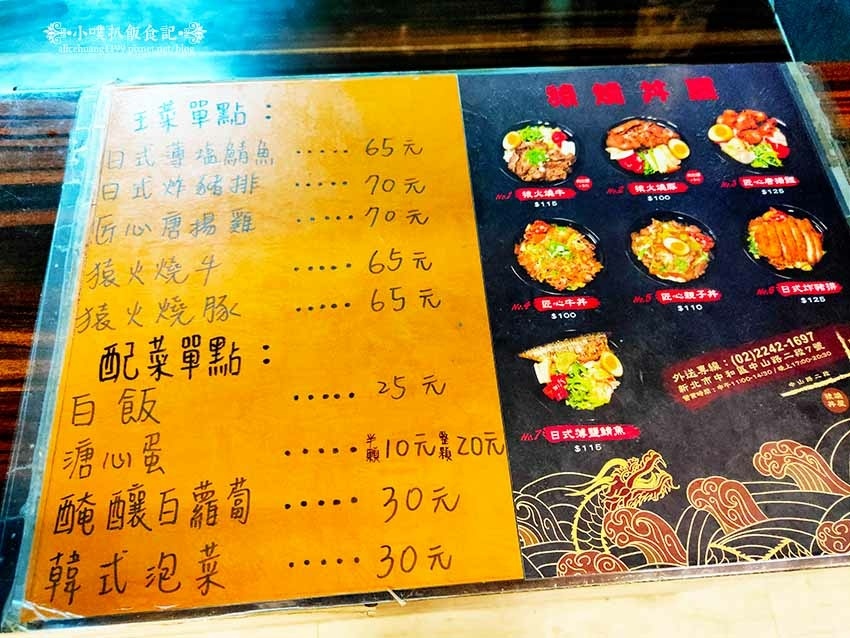 小噗扒飯食記
alicehuang1199.pixnet.net/blog
主菜單點：
日式薄塩鯖魚 ····· 65元
日式炸豬排 ····· 70元
匠心唐揚雞 ····· 70元
猿火燒牛 ····· 65元
猿火燒豚 ····· 65元
配菜單點：
白飯 ····· 25元
溏心蛋 ····· 半顆10元 整顆20元
醃釀白蘿蔔 ····· 30元
韓式泡菜 ····· 30元
猿燒丼飯
No.1 猿火燒牛
$115
No.2 猿火燒豚
$100
No.3 匠心唐揚雞
$125
No.4 匠心牛丼
$100
No.5 匠心親子丼
$110
No.6 日式炸豬排
$125
No.7 日式薄鹽鯖魚
$115
外送專線：(02)2242-1697
新北市中和區中山路二段7號
營業時間：中午11:00-14:30 / 晚上17:00-20:30
中山路二段